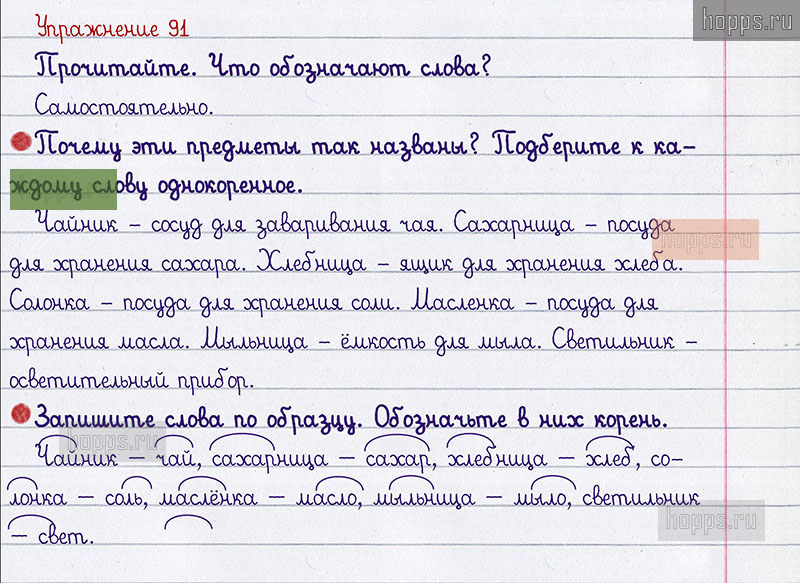 Упражнение 91
hopps.ru
Прочитайте. Что обозначают слова?
Самостоятельно.
Почему эти предметы так названы? Подберите к ка-
ждому слову однокоренное.
Чайник – сосуд для заваривания чая. Сахарница – посуда
hopps.ru
для хранения сахара. Хлебница – ящик для хранения хлеба.
Солонка – посуда для хранения соли. Масленка – посуда для
хранения масла. Мыльница – ёмкость для мыла. Светильник –
осветительный прибор.
Запишите слова по образцу. Обозначьте в них корень.
hopps.ru
Чайник – чай, сахарница – сахар, хлебница – хлеб, со-
лонка – соль, маслёнка – масло, мыльница – мыло, светильник
hopps.ru
– свет.